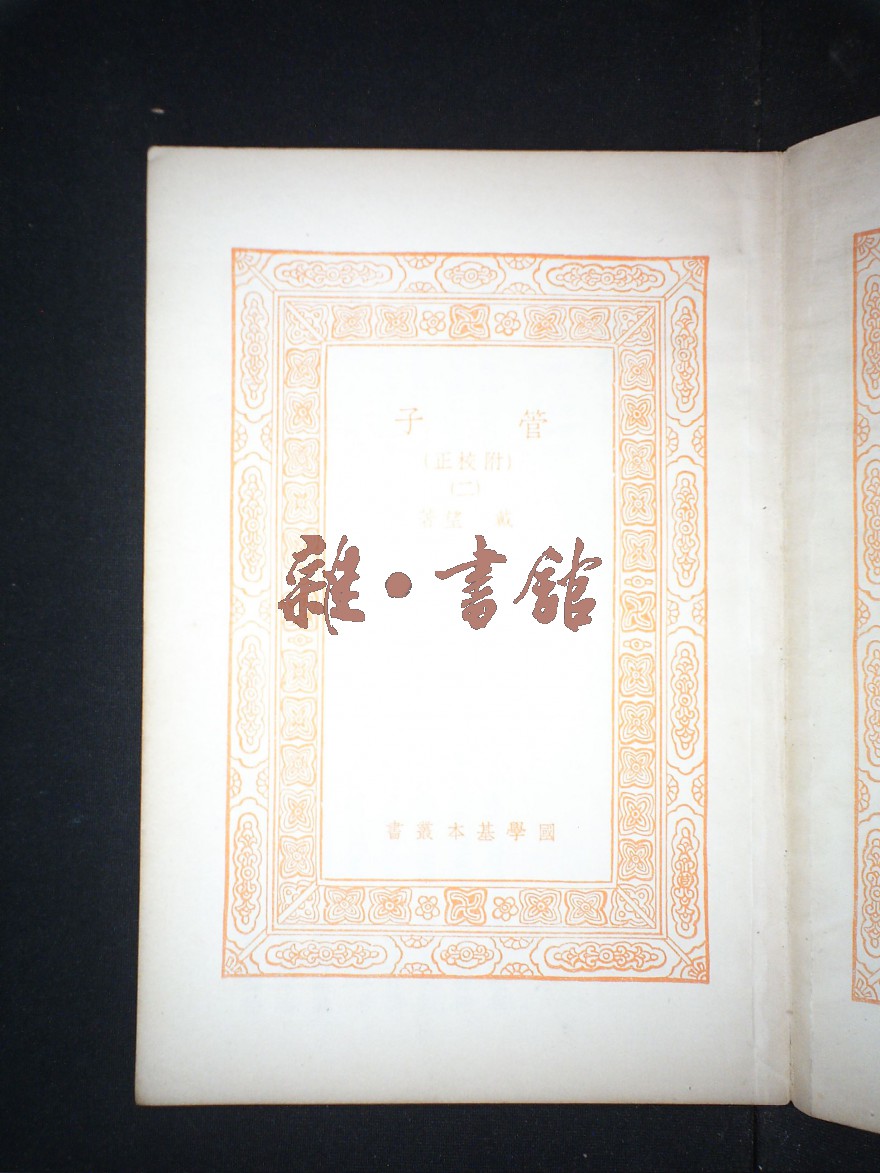 管子
(附校正)
(二)
戴望著
雜•書館
國學基本叢書